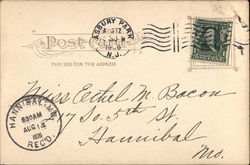 ASBURY PARK
AUG 12
N.J.
Post Card
THIS SIDE FOR THE ADDRESS
HANNIBAL, MO.
630AM
AUG 14
REC'D.
Miss Ethel M. Bacon
17 So. 5th St.
Hannibal
Mo.